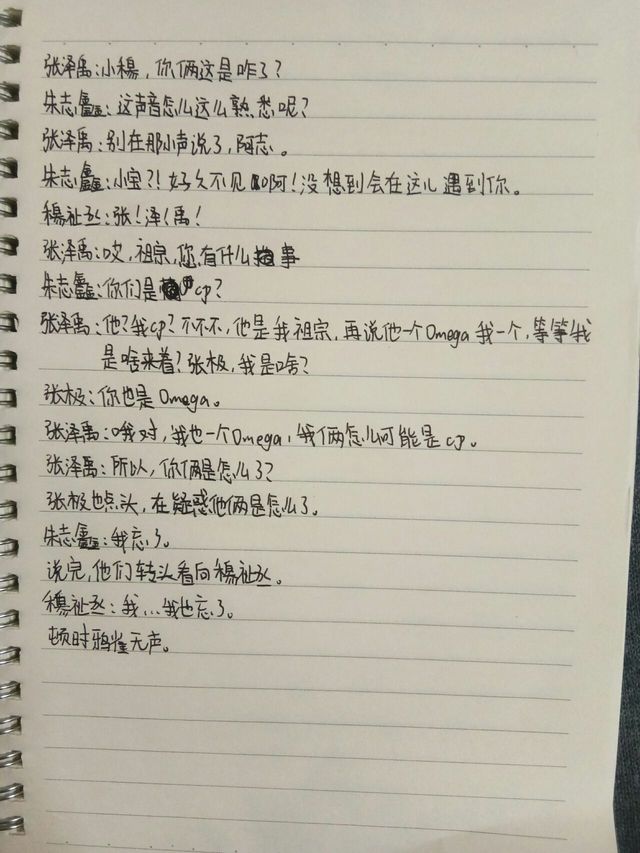 张泽禹:小穆,你俩这是咋了?
朱志鑫:这声音怎么这么熟悉呢?
张泽禹:别在那小声说了,阿志。
朱志鑫:小宝?!好久不见啊!没想到会在这儿遇到你。
穆祉丞:张!泽!禹!
张泽禹:哎,祖宗,您有什么事
朱志鑫:你们是cp?
张泽禹:他?我cp?不不不,他是我祖宗,再说他一个Omega我一个,等等!我
是啥来着?张极,我是啥?
张极:你也是Omega。
张泽禹:哦对,我也一个Omega,我俩怎么可能是cp。
张泽禹:所以,你俩是怎么了?
张极也点头,在疑惑他俩是怎么了。
朱志鑫:我忘了。
说完,他们转头看向穆祉丞。
穆祉丞:我...我也忘了。
顿时鸦雀无声。